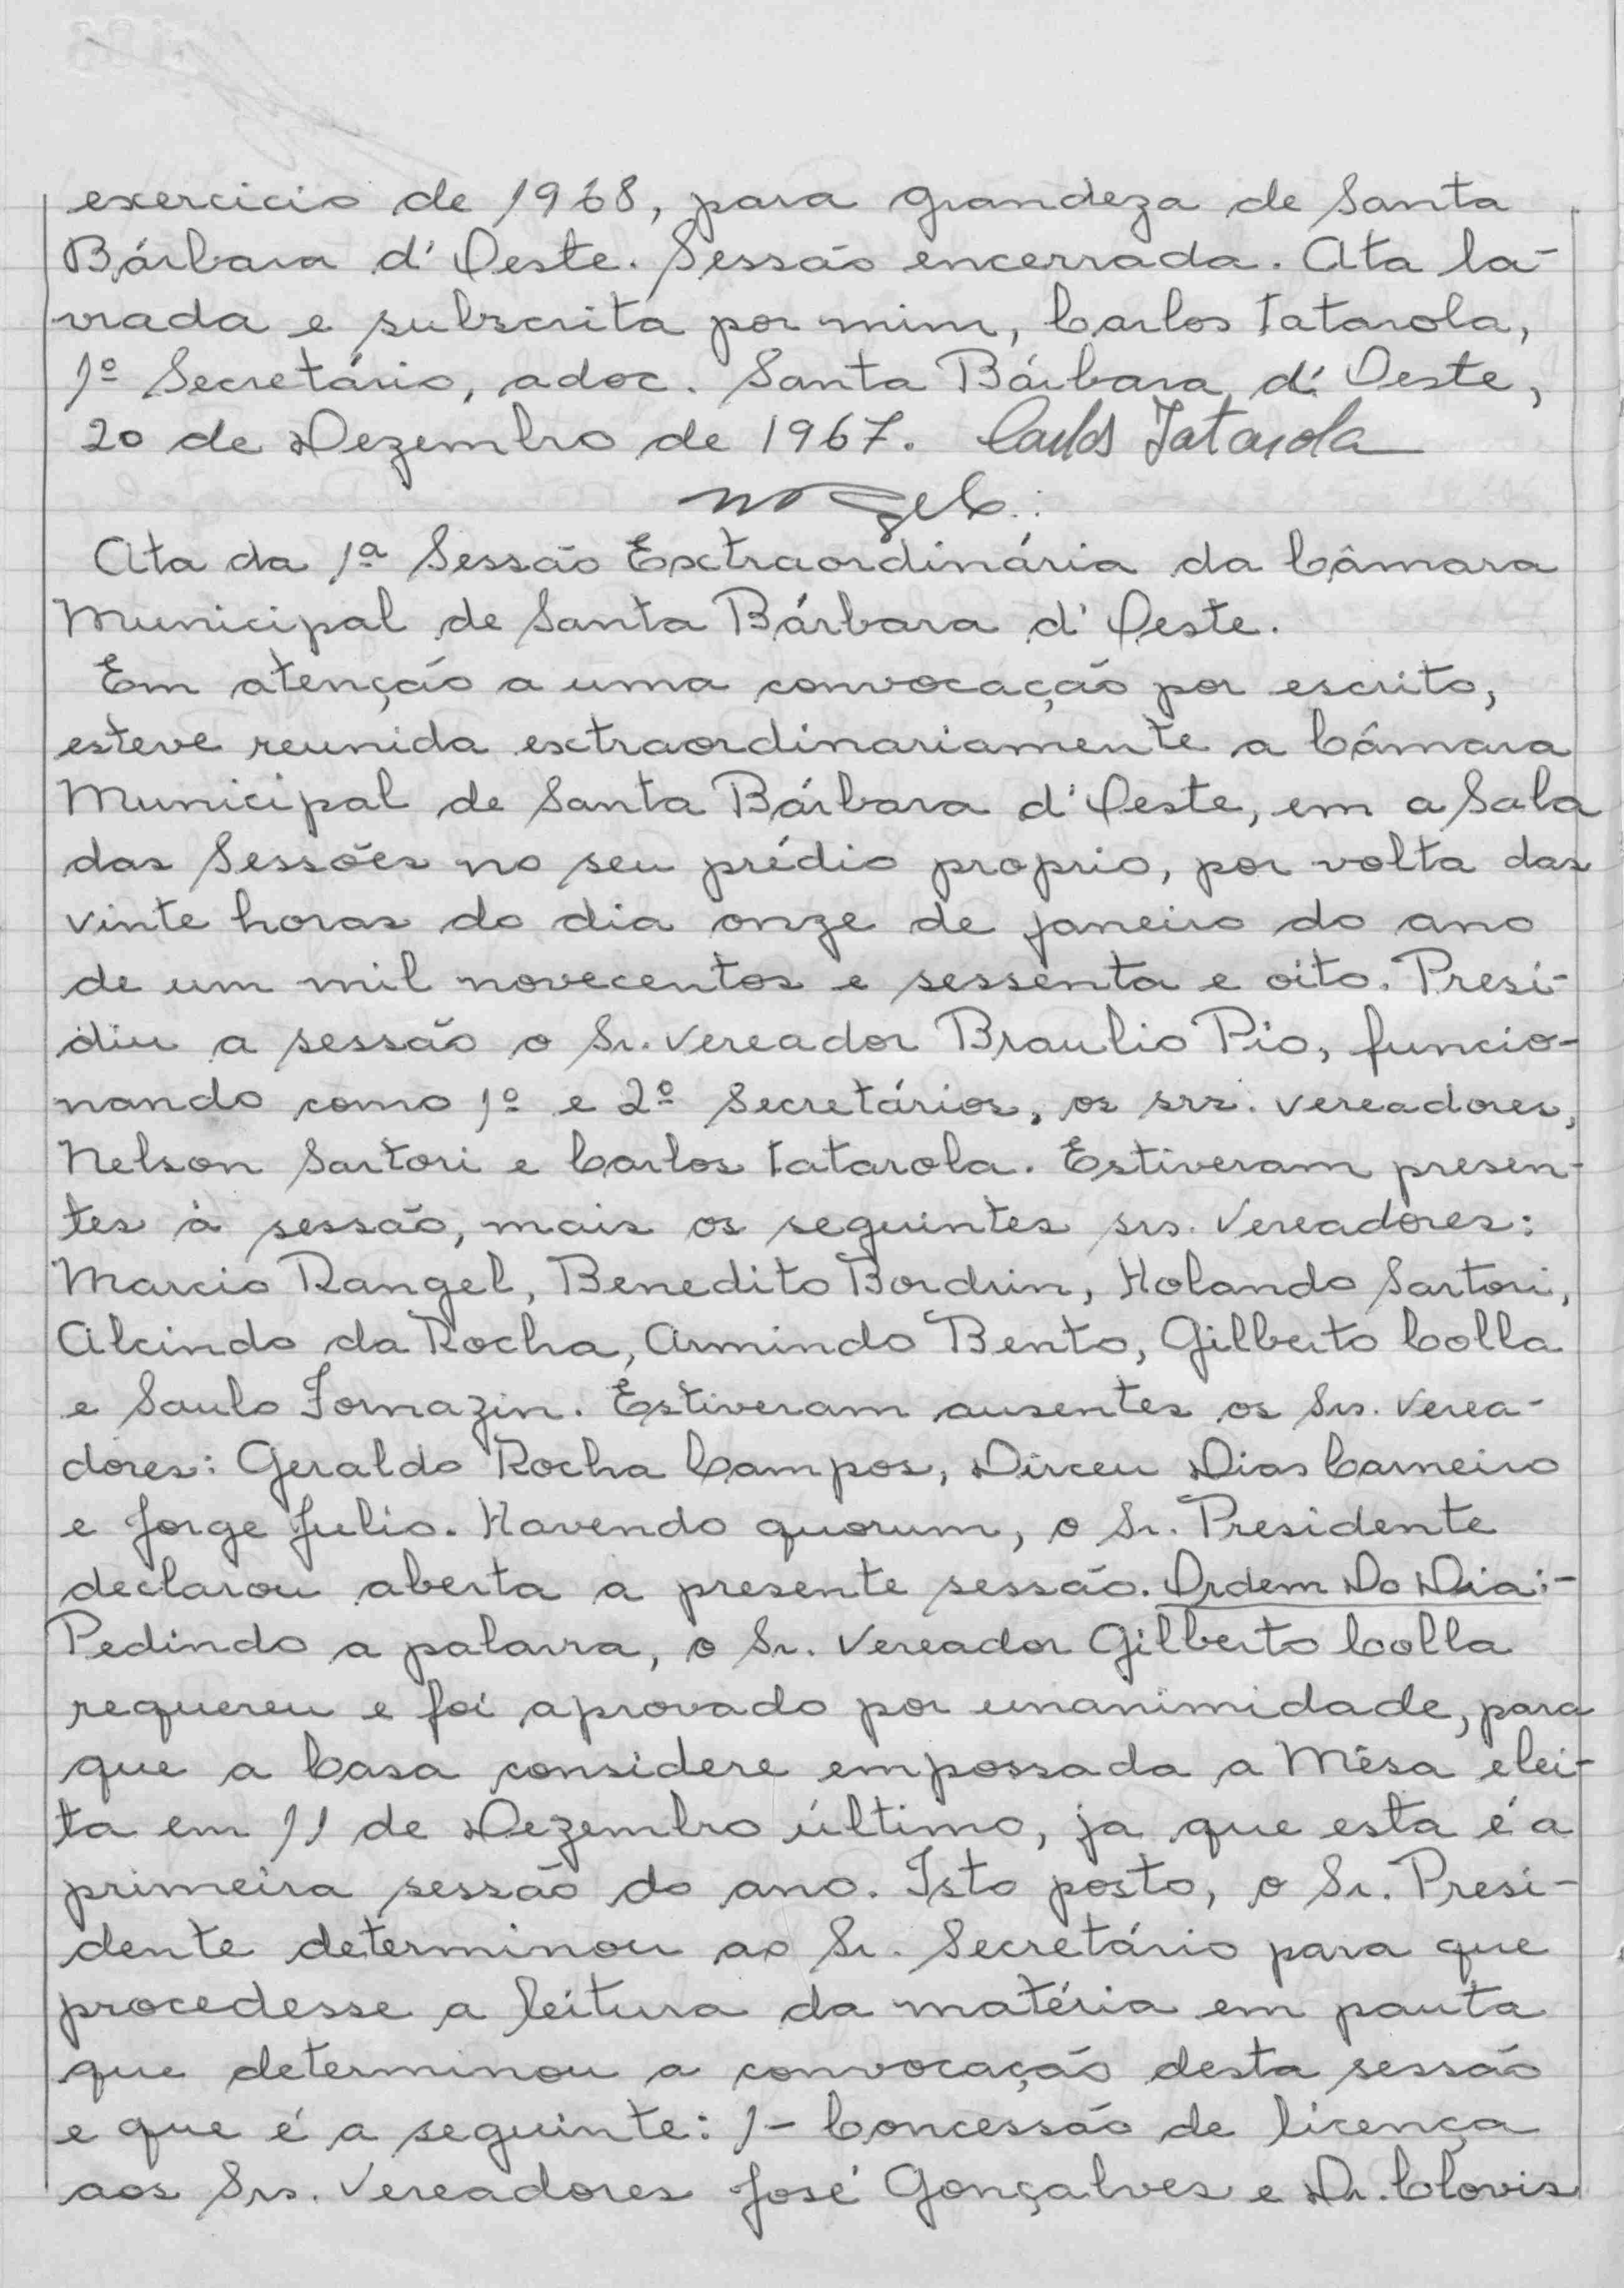 exercicio de 1968, para grandeza de Santa
Bárbara d'Oeste. Sessão encerrada. Ata la-
vrada e subscrita por mim, Carlos Tatarola,
1º Secretário, adoc. Santa Bárbara d'Oeste,
20 de Dezembro de 1967. Carlos Tatarola
Ata da 1ª Sessão Extraordinária da Câmara
Municipal de Santa Bárbara d'Oeste.
Em atenção a uma convocação por escrito,
esteve reunida extraordinariamente a Câmara
Municipal de Santa Bárbara d'Oeste, em a Sala
das Sessões no seu prédio proprio, por volta das
vinte horas do dia onze de janeiro do ano
de um mil novecentos e sessenta e oito. Presi-
diu a sessão o Sr. Vereador Braulio Pio, funcio-
nando como 1º e 2º Secretários, os srs. vereadores,
Nelson Sartori e Carlos Tatarola. Estiveram presen-
tes à sessão, mais os seguintes srs. Vereadores:
Marcio Rangel, Benedito Bordrin, Holando Sartori,
Alcindo da Rocha, Armindo Bento, Gilberto Colla
e Saulo Fornazin. Estiveram ausentes os Srs. Verea-
dores: Geraldo Rocha Campos, Dirceu Dias Carneiro
e Jorge Julio. Havendo quorum, o Sr. Presidente
declarou aberta a presente sessão. Ordem Do Dia:-
Pedindo a palavra, o Sr. Vereador Gilberto Colla
requereu e foi aprovado por unanimidade, para
que a Casa considere empossada a Mêsa elei-
ta em 11 de Dezembro último, ja que esta é a
primeira sessão do ano. Isto posto, o Sr. Presi-
dente determinou ao Sr. Secretário para que
procedesse a leitura da matéria em pauta
que determinou a convocação desta sessão
e que é a seguinte: 1- Concessão de licença
aos Srs. Vereadores José Gonçalves e Dr. Clovis